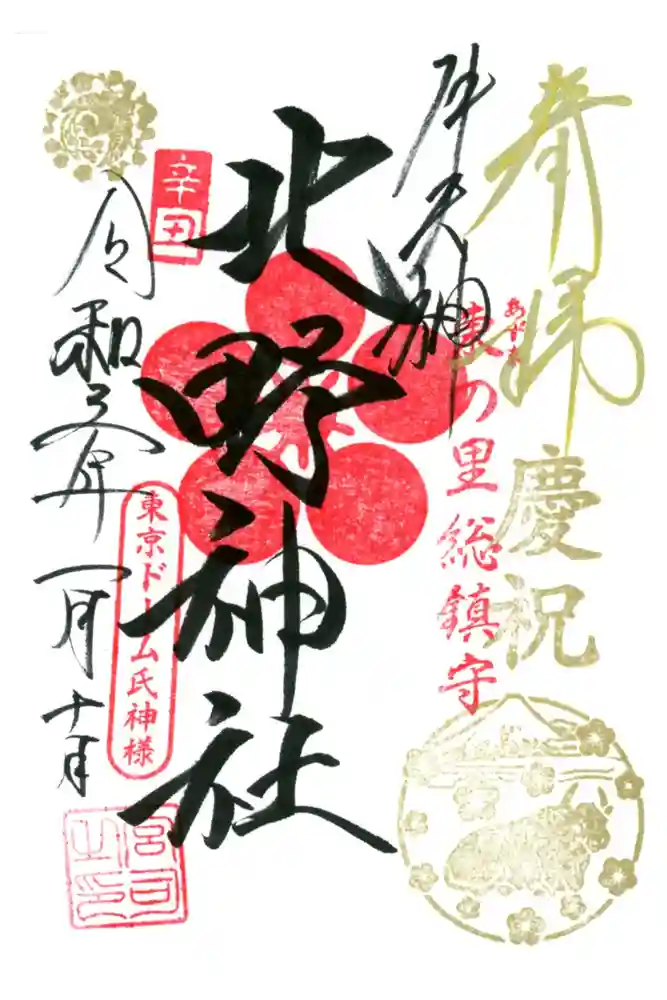 奉拝
慶祝
の里総鎮守
牛天神
北野神社
辛丑
東京ドーム氏神様
令和三年一月十日
宮司之印